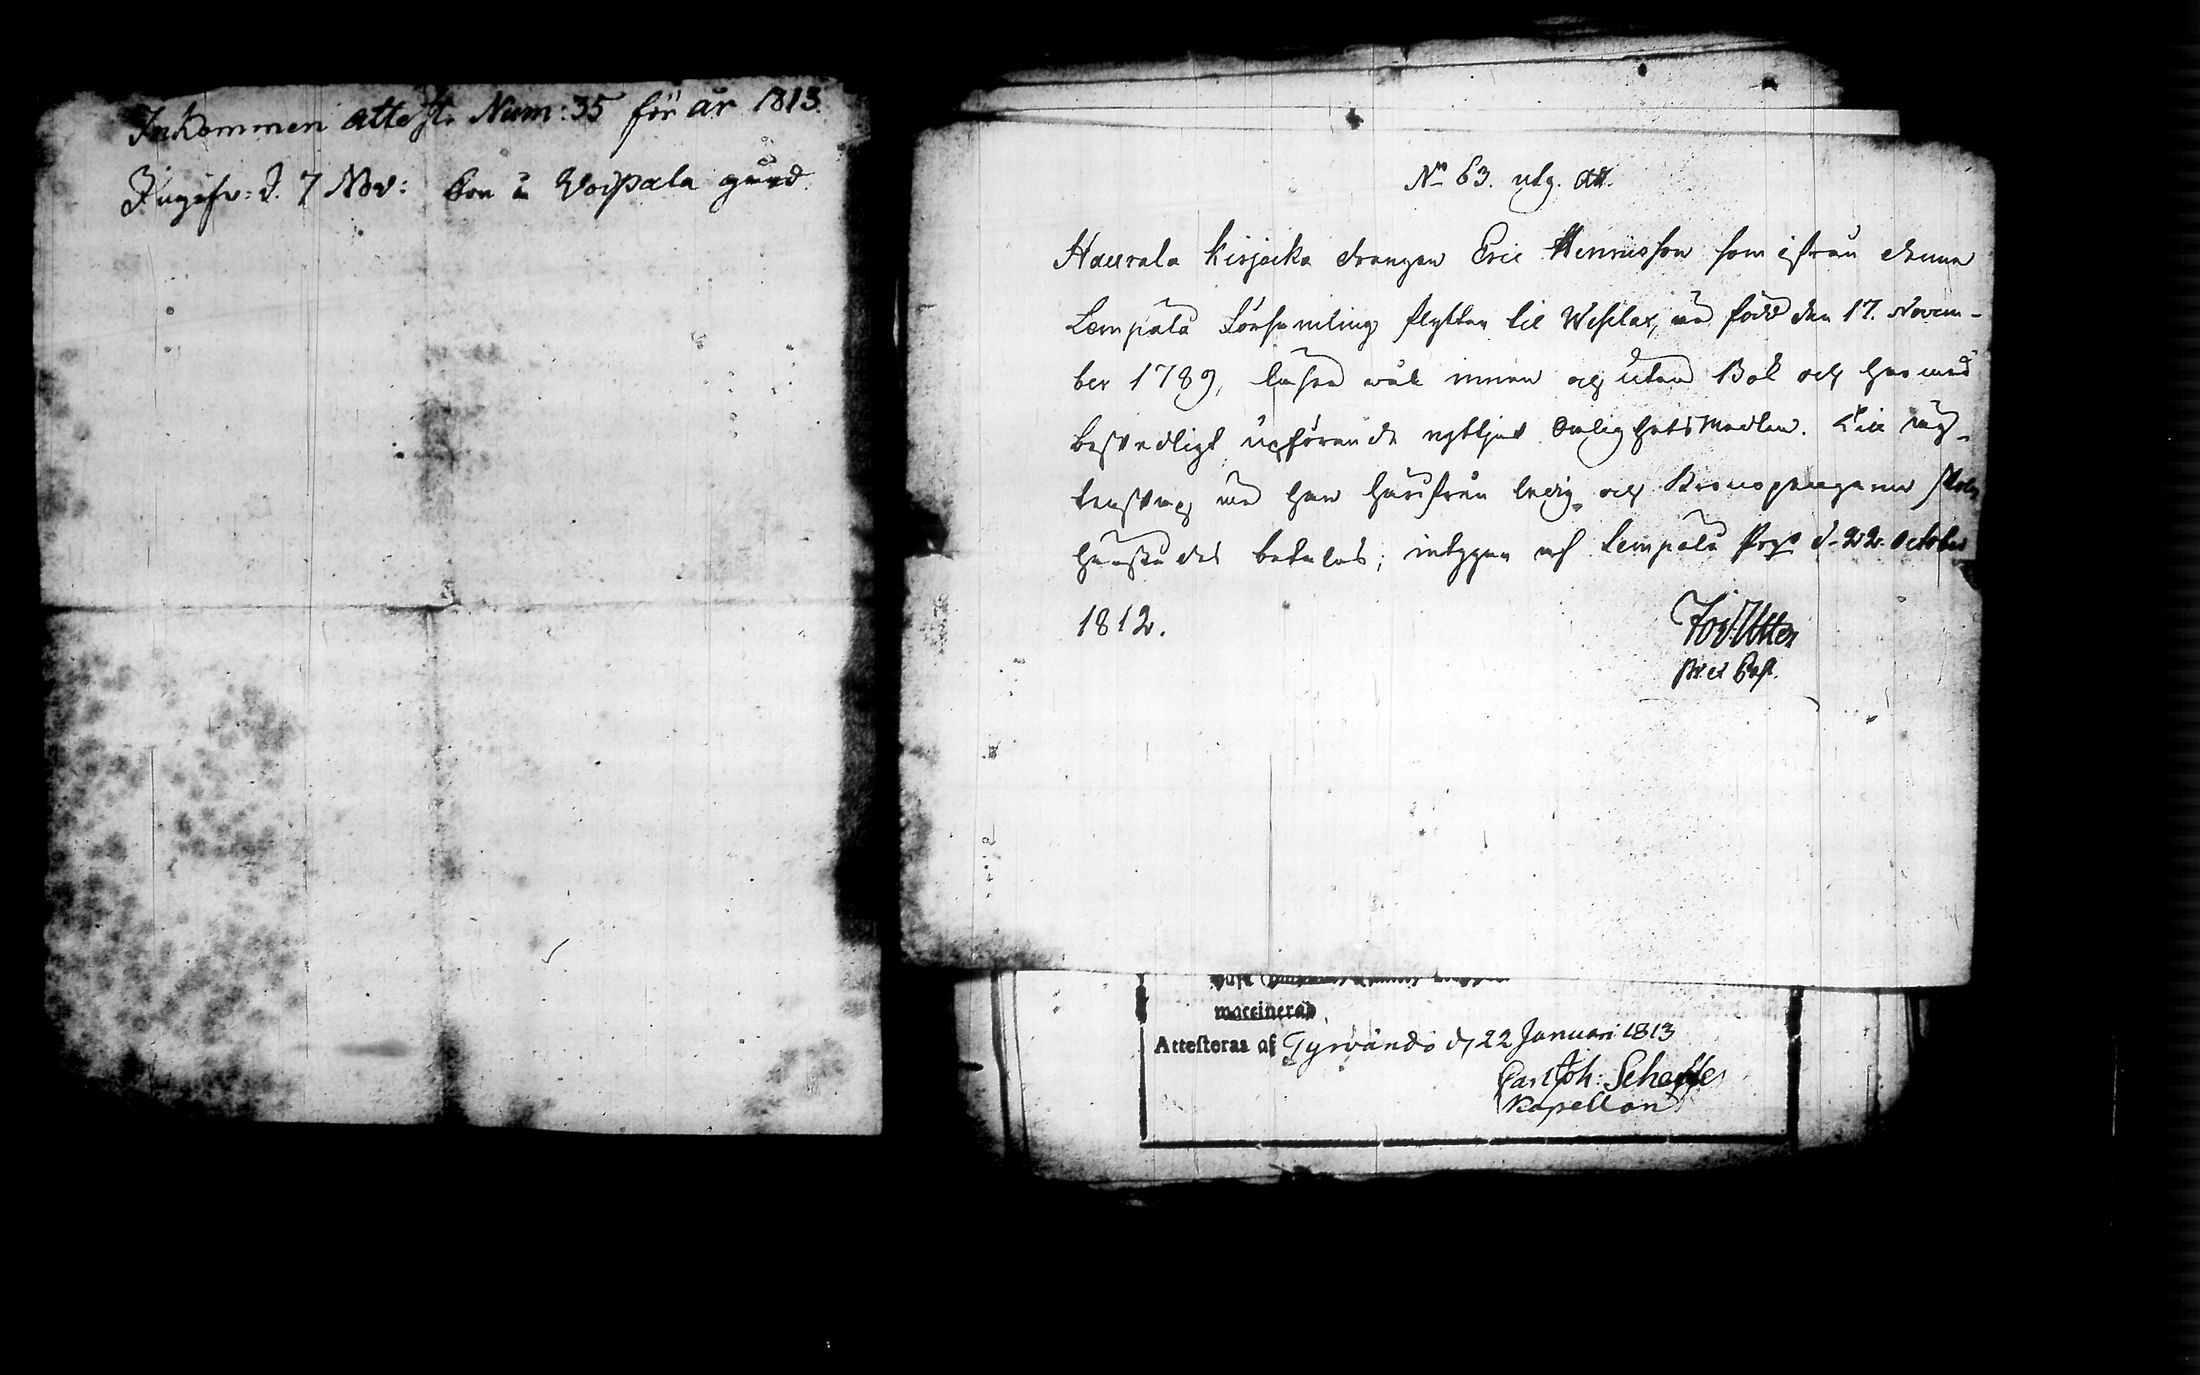 Inkommen attest. Num: 35 för år 1813.
Ingifv: d. 7 Nov: bor i Voipala gård
No 63. utg. Att.
Haurala Kirjacka drengen Eric Henricsson som ifrån denna
Lempälä Församling flyttar til Wesilax, är född den 17. Novem-
ber 1789, läser wäl innan och utan Bok och har med
beskedligt upförande nyttjat Salighets Medlen. Til äg-
tenskap är han härifrån ledig, och Kronopengarne
härstädes betalas; intygar af Lempälä Prgd d. 22. October
1812.
Past.
maccinerad,
Attesteras af Tyrvändö d. 22 Januari 1813
Carl Joh: Scheffer
Kapellan